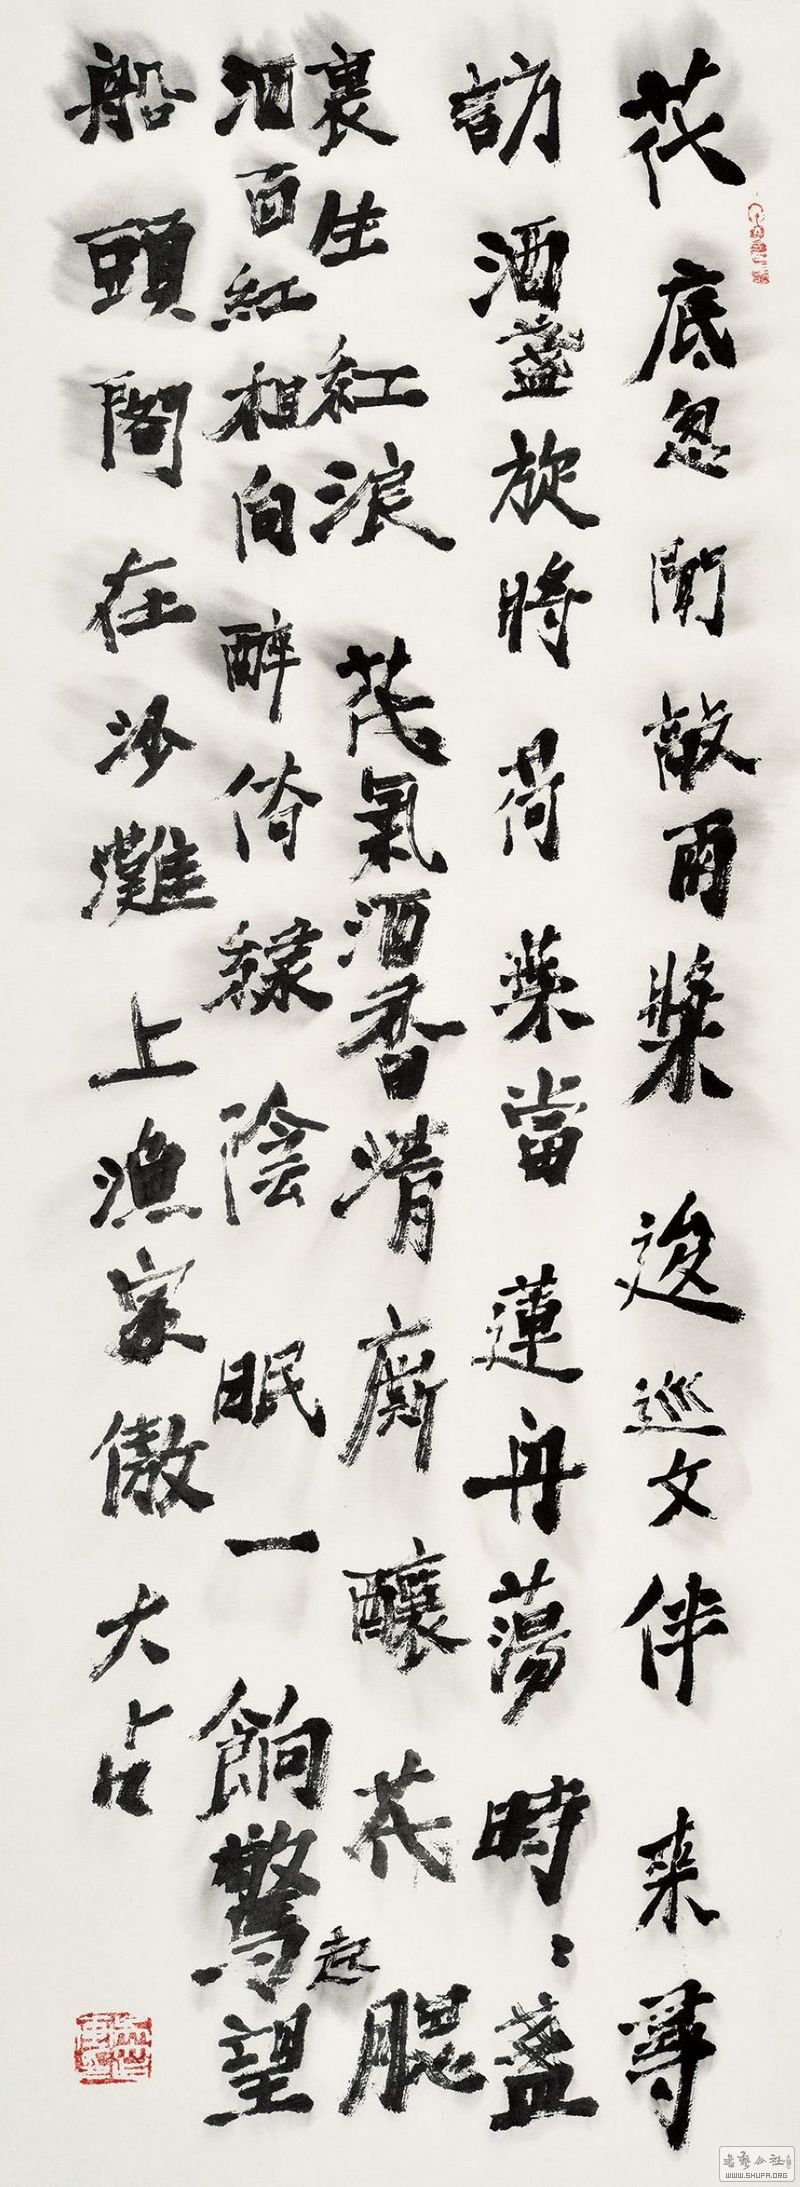 花底忽聞敲兩槳逡巡女伴来尋
訪酒盞旋將荷葉當蓮舟蕩時〻盞
裏生紅浪花氣酒香清廝釀花腮
酒面紅相向醉倚綠陰眠一餉驚起望
船頭閣在沙灘上漁家傲大占
書藝公社
WWW.SHUFA.ORG